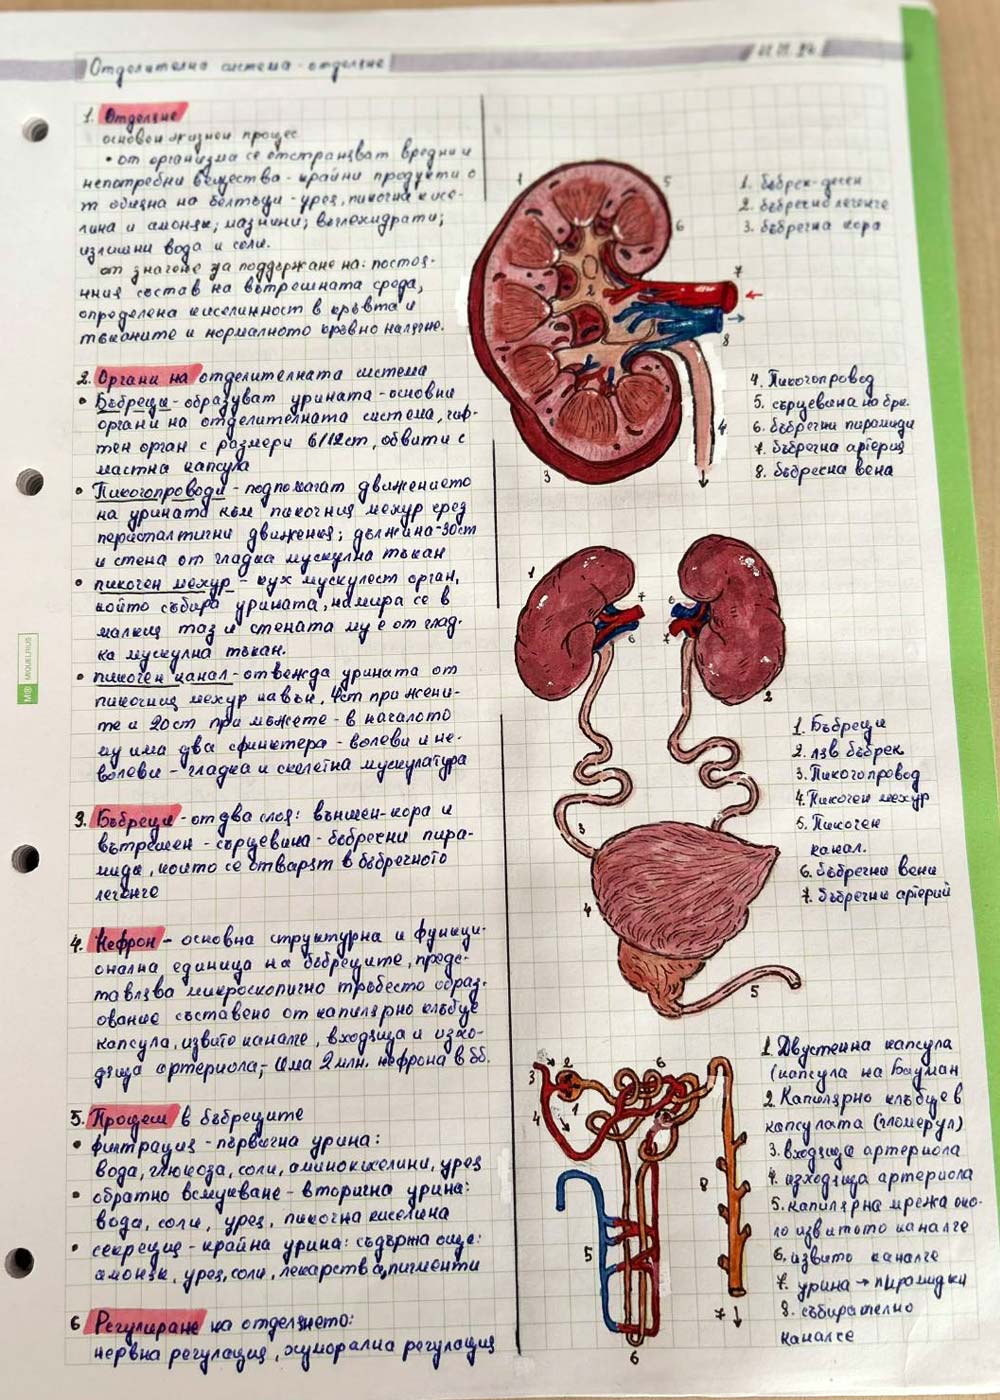 Отделителна система - отделяне
1. Отделяне
основен жизнен процес
• от организма се отстраняват вредни и
непотребни вещества - крайни продукти о
т обмяна на белтъци - урея, пикочна кисе-
лина и амоняк; мазнини; въглехидрати;
излишни вода и соли.
от значене за поддържане на: постоя-
нния състав на вътрешната среда,
определена киселинност в кръвта и
тъканите и нормалното кръвно наляне.
2. Органи на отделителната система
• Бъбреци - образуват урината - основни
органи на отделителната система, чиф-
тен орган с размери 6/12см, обвити с
мастна капсула
• Пикочопроводи - подпомагат движението
на урината към пикочния мехур чрез
перисталтични движения; дължина - 30см
и стена от гладка мускулна тъкан
• пикочен мехур - кух мускулест орган,
който събира урината, намира се в
малкия таз и стената му е от глад-
ка мускулна тъкан.
• пикочен канал - отвежда урината от
пикочния мехур навън, 4см при жени-
те и 20см при мъжете - в началото
му има два сфинктера - волеви и не-
волеви - гладка и скелетна мускулатура
3. Бъбреци - от два слоя: външен - кора и
вътрешен - сърцевина - бъбречни пира-
миди, които се отварят в бъбречното
легенче
4. Нефрон - основна структурна и функци-
онална единица на бъбреците, предс-
тавлява микроскопично тръбесто образ-
ование съставено от капилярно кълбце
капсула, извито каналче, входяща и изхо-
дяща артериола; - има 2 млн. нефрона в бб.
5. Процеси в бъбреците
• филтрация - първична урина:
вода, глюкоза, соли, аминокиселини, урея
• обратно всмукване - вторична урина:
вода, соли, урея, пикочна киселина
• секреция - крайна урина: съдържа още:
амоняк, урея, соли, лекарства, пигменти
6 Регулиране на отделянето:
нервна регулация, хуморална регулация
1. бъбрек - десен
2. бъбречно легенче
3. бъбречна кора
4. Пикочопровод
5. сърцевина на бъбре.
6. бъбречни пирамиди
7. бъбречна артерия
8. бъбречна вена
1
5
6
2
7
8
4
3
1
7
6
6
7
2
3
4
5
1. Бъбреци
2. ляв бъбрек
3. Пикочопровод
4. Пикочен мехур
5. Пикочен
канал.
6. бъбречни вени
7. бъбречни артерий
3
2
6
1
4
5
8
7
6
1. Двустенна капсула
(капсула на Бауман
2. Капилярно кълбце в
капсулата (гломерул)
3. входяща артериола
4. изходяща артериола
5. капилярна мрежа око-
ло извитото каналче
6. извито каналче
7. урина → пирамидки
8. събирателно
каналче
MIQUELRIUS